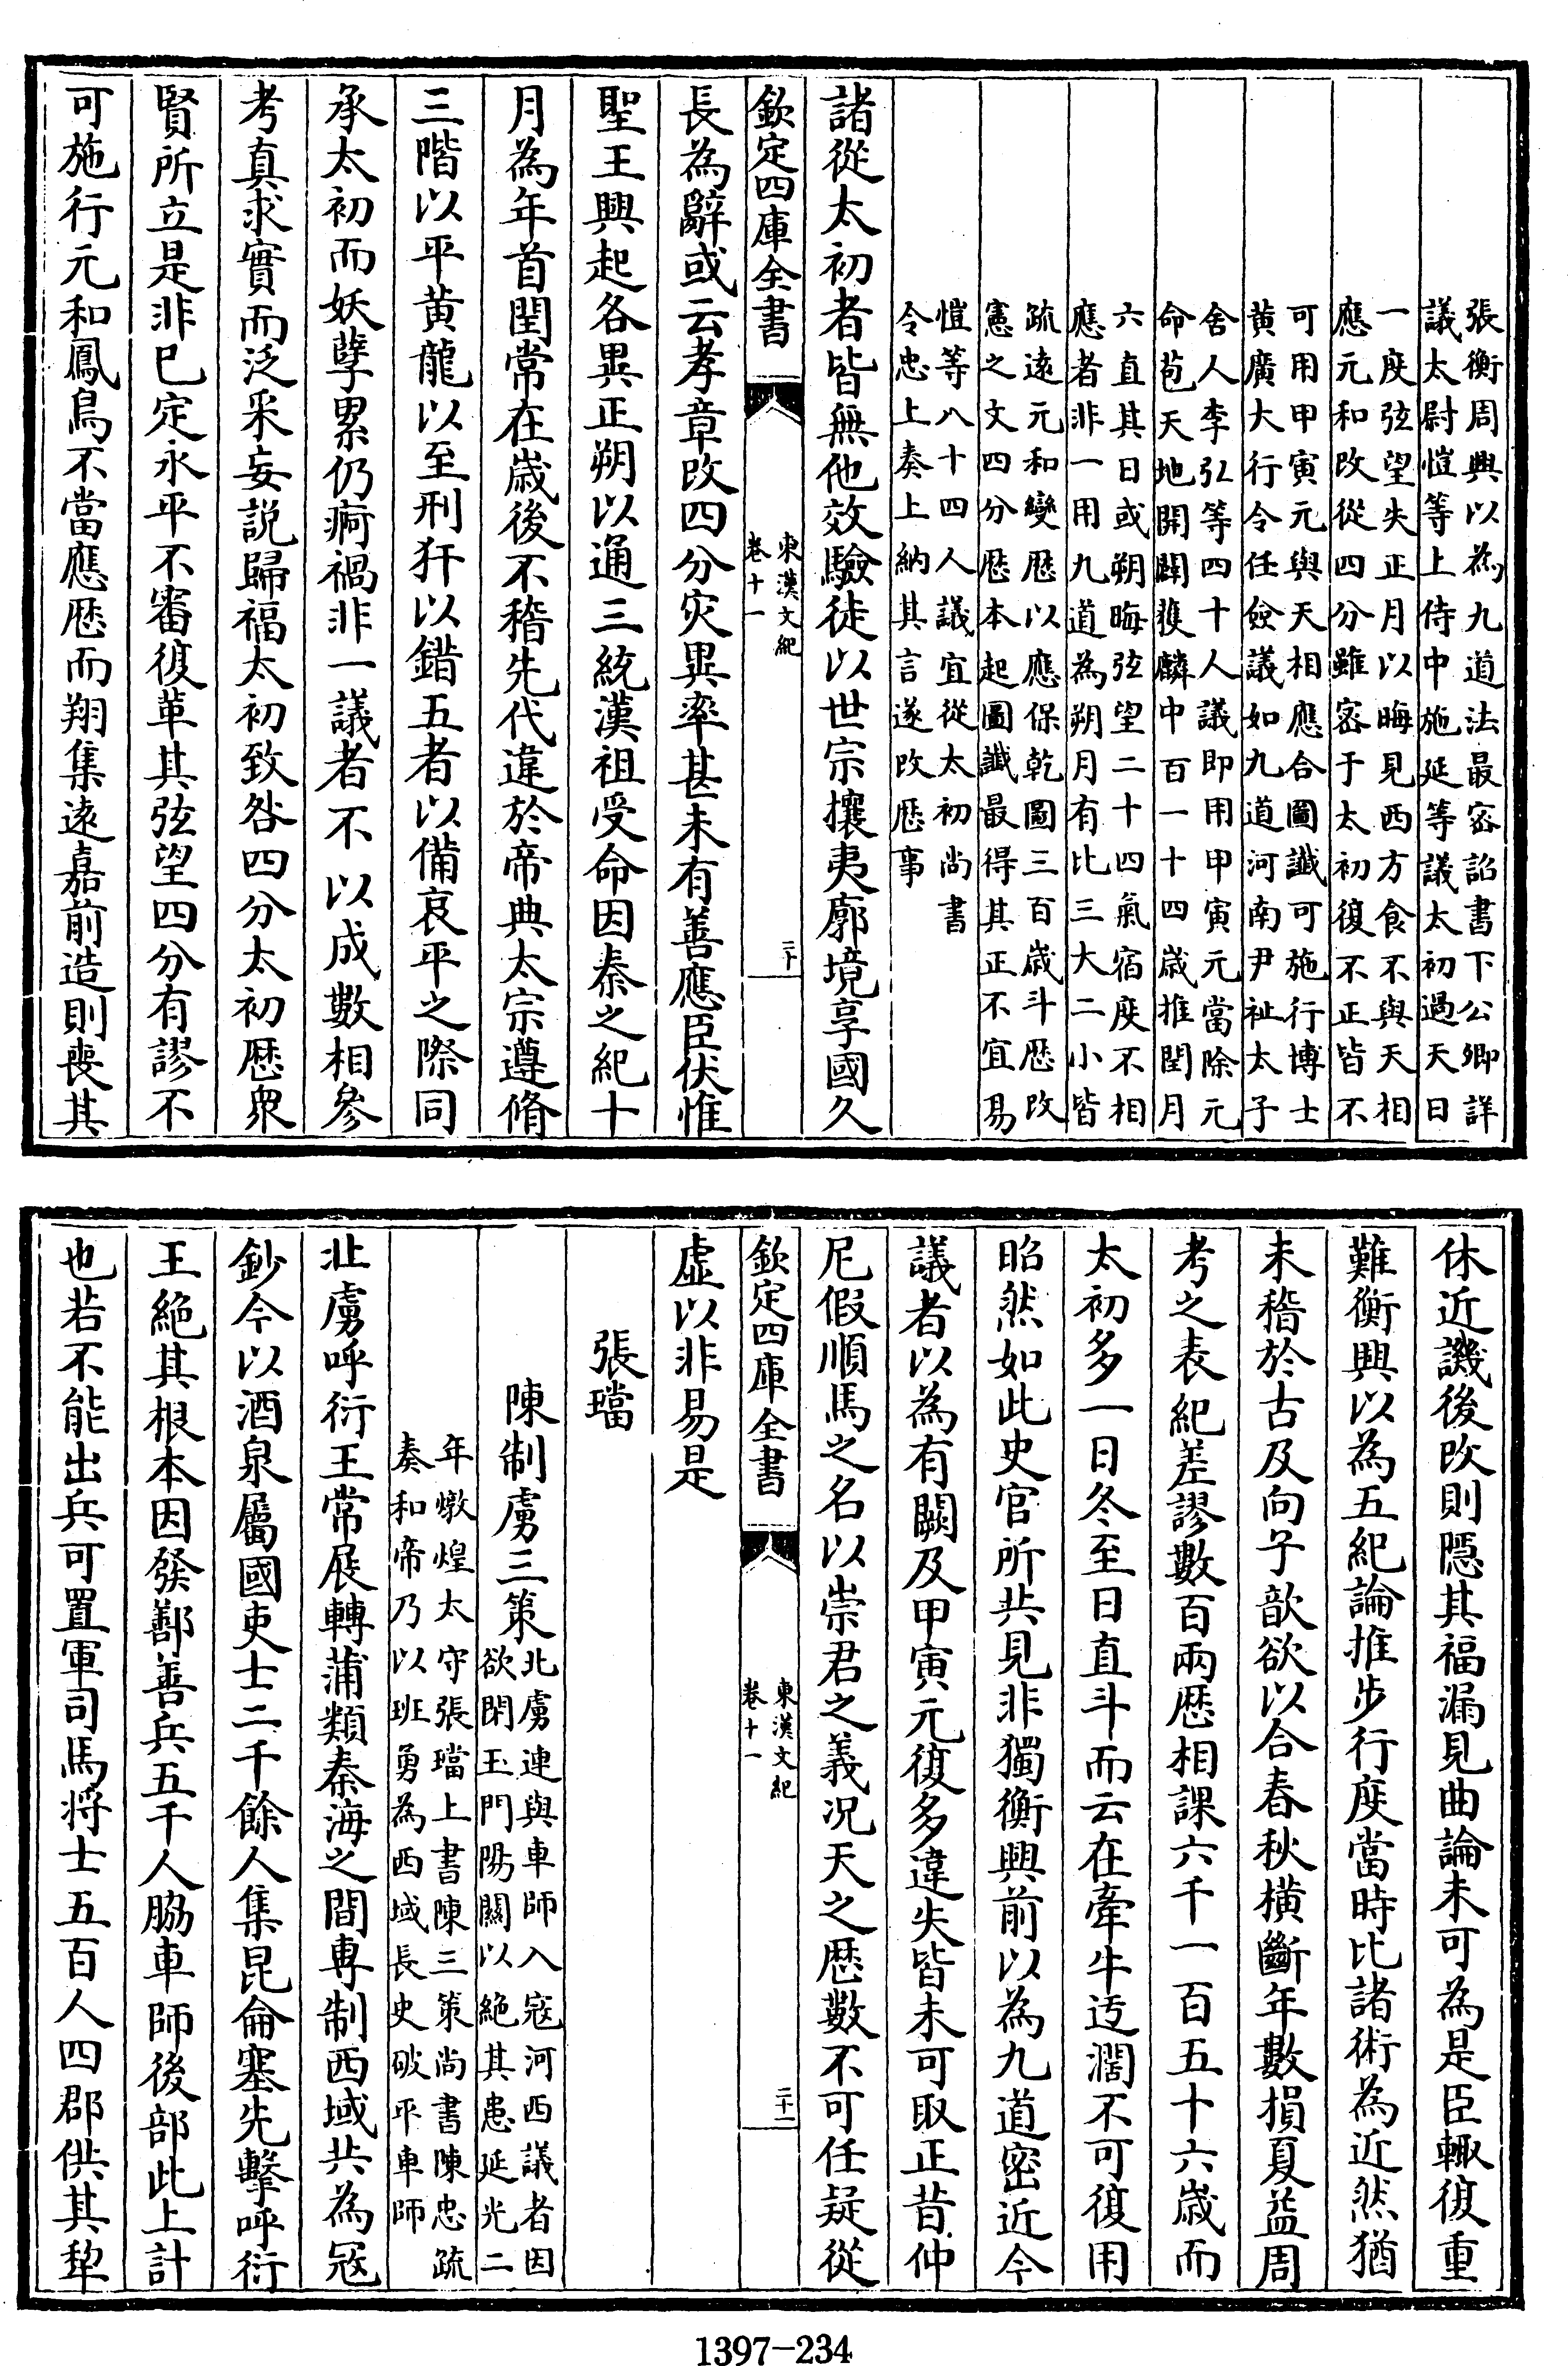 張衡周興以為九道法最宻詔書下公卿詳
議太尉愷等上侍中施延等議太初過天日
一度弦望失正月以晦見西方食不與天相
應元和改從四分雖宻于太初復不正皆不
可用甲寅元與天相應合圖讖可施行博士
黄廣大行令任僉議如九道河南尹祉太子
舍人李弘等四十人議即用甲寅元當除元
命苞天地開闢獲麟中百一十四歲推閏月
六直其日或朔晦弦望二十四氣宿度不相
應者非一用九道為朔月有比三大二小皆
疏逺元和變厯以應保乾圖三百歲斗厯改
憲之文四分厯本起圖讖最得其正不宜易
愷等八十四人議宜從太初尚書
令忠上奏上納其言遂改厯事
諸從太初者皆無他效驗徒以世宗攘夷廓境享國久
欽定四庫全書
東漢文紀
卷十一
二十
長為辭或云孝章改四分灾異率甚未有善應臣伏惟
聖王興起各異正朔以通三統漢祖受命因秦之紀十
月為年首閏常在歲後不稽先代違於帝典太宗遵脩
三階以平黄龍以至刑犴以錯五者以備哀平之際同
承太初而妖孽累仍痾禍非一議者不以成數相參
考真求實而泛采妄説歸福太初致咎四分太初厯衆
賢所立是非已定永平不審復革其弦望四分有謬不
可施行元和鳳鳥不當應厯而翔集逺嘉前造則喪其
休近譏後改則隠其福漏見曲論未可為是臣輙復重
難衡興以為五紀論推步行度當時比諸術為近然猶
未稽於古及向子歆欲以合春秋橫斷年數損夏益周
考之表紀差謬數百兩厯相課六千一百五十六歲而
太初多一日冬至日直斗而云在牽牛迂濶不可復用
昭然如此史官所共見非獨衡興前以為九道密近今
議者以為有闕及甲寅元復多違失皆未可取正昔仲
尼假順馬之名以崇君之義况天之厯數不可任疑從
欽定四庫全書
東漢文紀
卷十一
二十一
虚以非易是
張璫
陳制虜三策
北虜連與車師入寇河西議者因
欲閉玉門陽關以絶其患延光二
年燉煌太守張璫上書陳三策尚書陳忠疏
奏和帝乃以班勇為西域長史破平車師
北虜呼衍王常展轉蒲類秦海之間専制西域共為寇
鈔今以酒泉屬國吏士二千餘人集昆侖塞先擊呼衍
王絶其根本因發鄯善兵五千人脇車師後部此上計
也若不能出兵可置軍司馬将士五百人四郡供其犂
1397-234